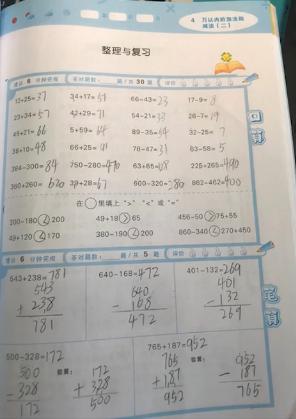 4 万以内的加法和
减法（二）
整理与复习
建议 6 分钟完成 答对题数： 题/共 30 题 评价
12+25=37 34+17=51 66-43=23 17-9=8
23+34=57 42+29=71 54-21=33 26-7=19
45+21=66 5+59=64 89-35=54 32-25=7
38+10=48 66+25=91 78-47=31 63-58=5
384-300=84 750-280=470 63+65=128 225+265=490
360+260=620 39+28=67 600-320=280 862-462=400
口算
在○里填上“>”“<”或“=”
300-180<200 49+18>65 456-50>75+55
49+120<170 380-190<200 860-340<270+450
建议 6 分钟完成 答对题数： 题/共 5 题 评价
543+238=781 640-168=472 401-132=269
543 640 401
+ 238 - 168 - 132
781 472 269
笔算
500-328=172 765+187=952
500 验算： 172 765 验算： 952
- 328 + 328 + 187 - 187
172 500 952 765